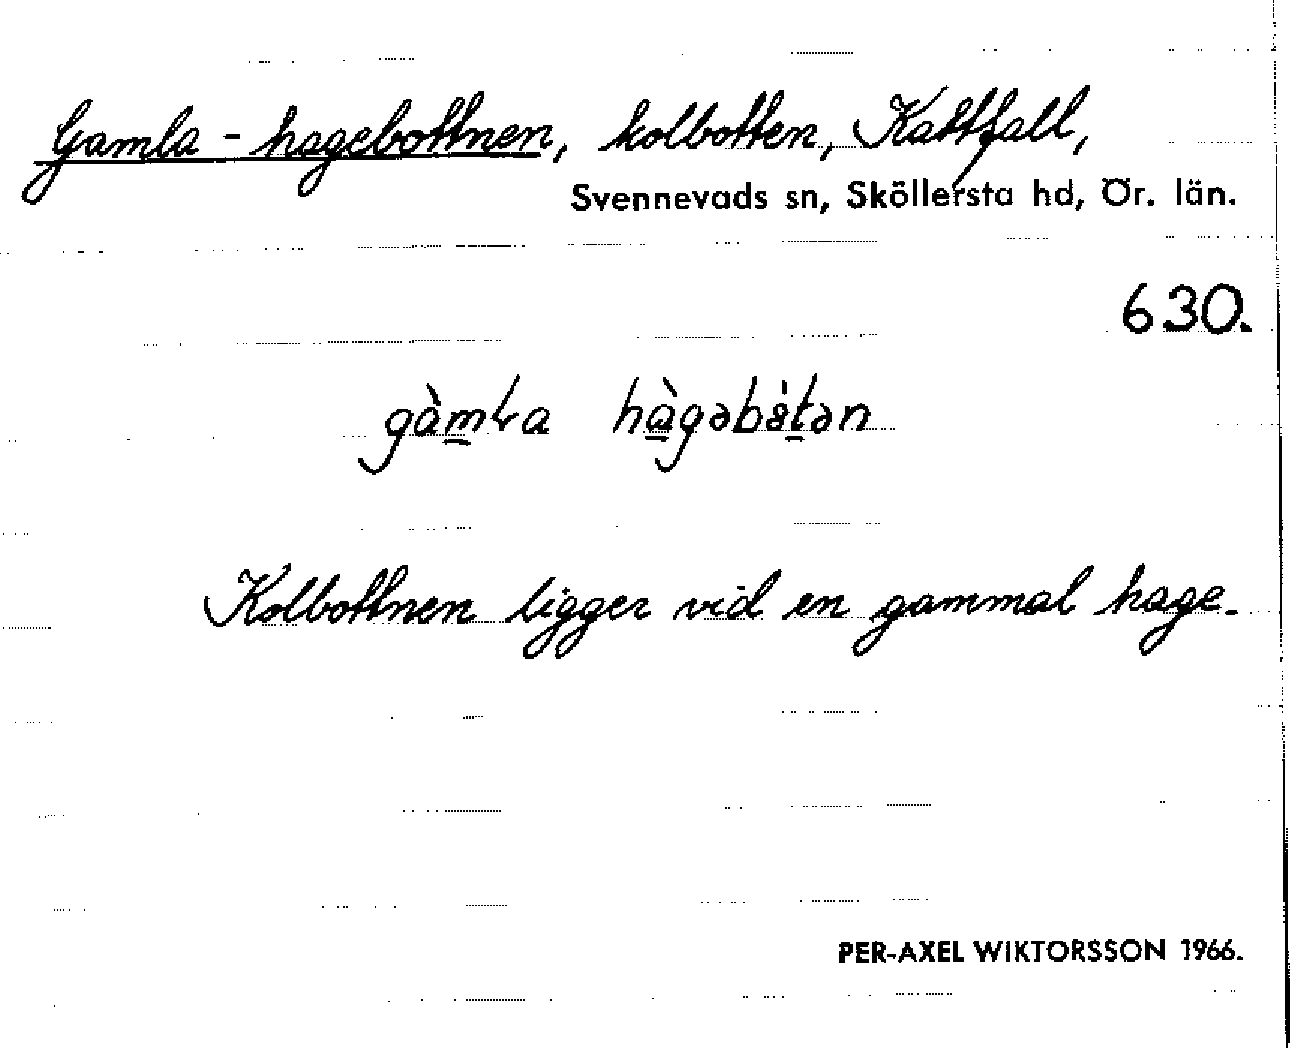 Gamla-hagebottnen, kolbotten, Kattfall,
Svennevads sn, Sköllersta hd, Ör. län.
630.
gàm̲ɬa hà̲gəbåt̲ən
Kolbottnen ligger vid en gammal hage.
PER-AXEL WIKTORSSON 1966.